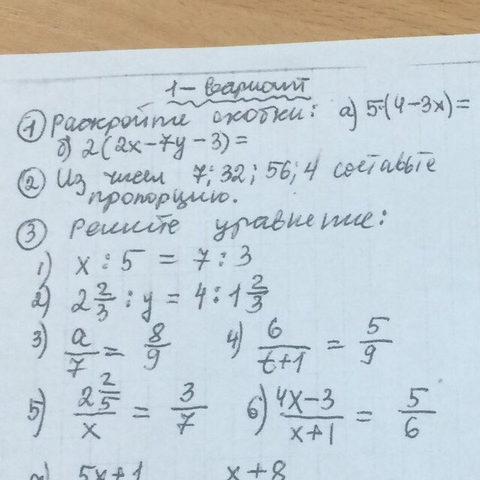 1-вариант
① Раскройте скобки: а) 5·(4-3x)=
б) 2(2x-7y-3)=
② Из чисел 7; 32; 56; 4 составьте
пропорцию.
③ Решите уравнение:
1) x : 5 = 7 : 3
2) 2 2/3 : y = 4 : 1 2/3
3) a/7 = 8/9 4) 6/(t+1) = 5/9
5) (2 2/5)/x = 3/7 6) (4x-3)/(x+1) = 5/6
5x+1 x+8